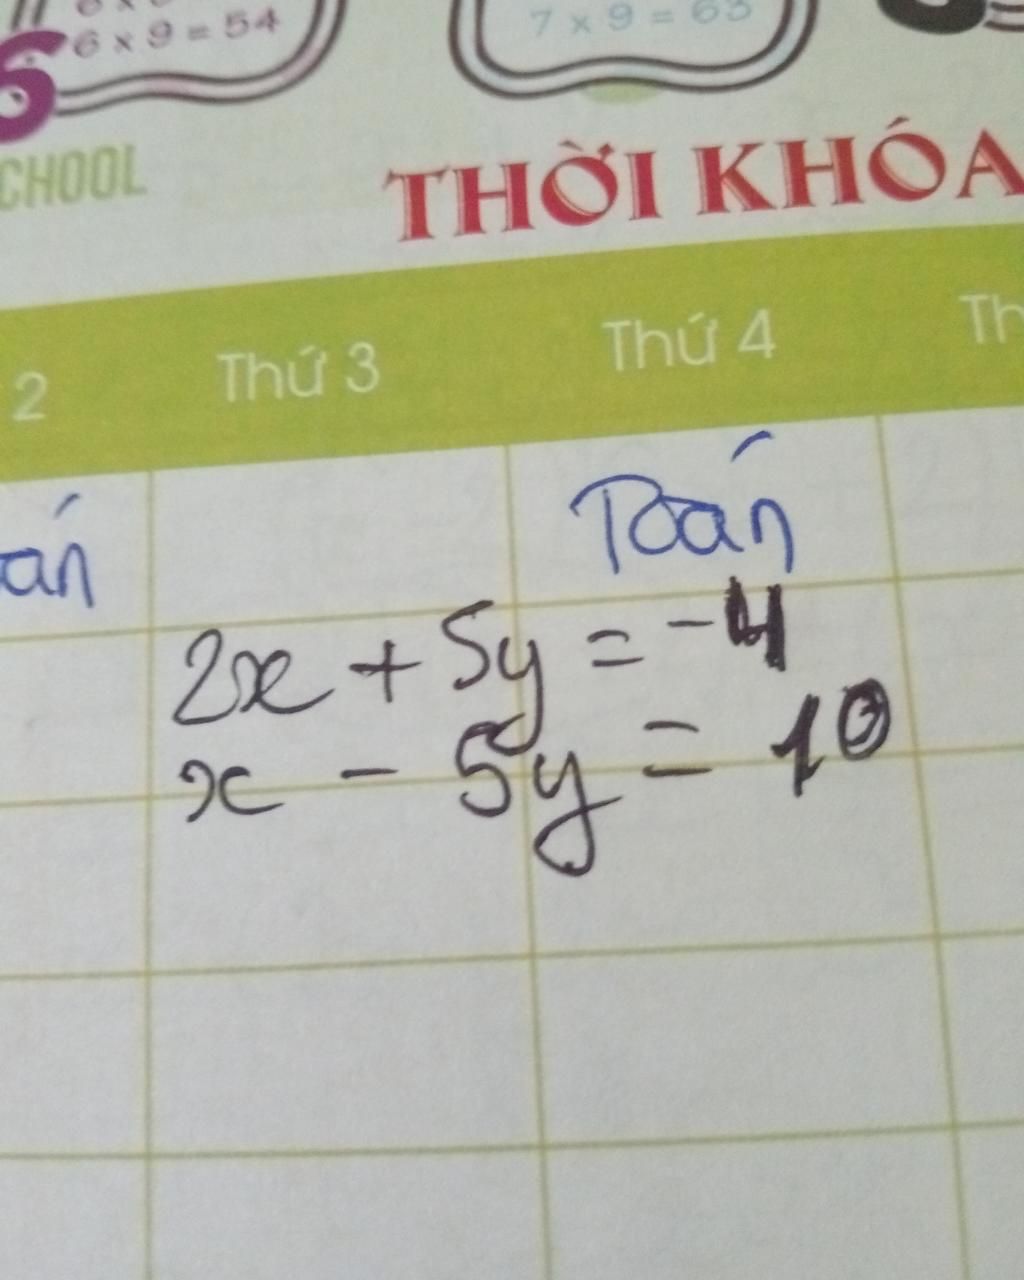 6 x 9 = 54
7 x 9 = 63
6
CHOOL
THỜI KHÓA
2 Thứ 3 Thứ 4 Th
án Toán
2x + 5y = -4
x - 5y = 10